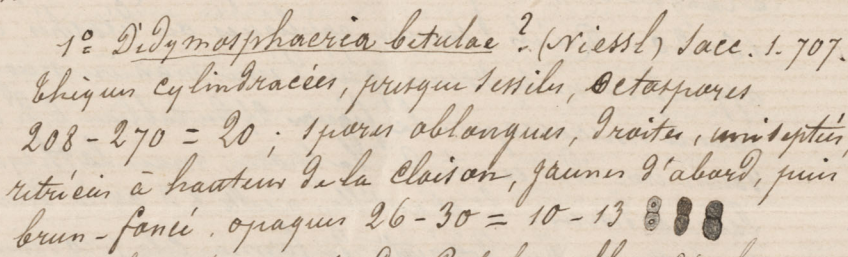 1º Didymosphaeria betulae ? (Niessl) Sacc. 1. 707.
thèques cylindracées, presque sessiles, octospores
208 - 270 = 20 ; spores oblongues, droites, uniseptées,
rétrécies à hauteur de la cloison, jaunes d'abord, puis
brun-foncé. opaques 26 - 30 = 10 - 13